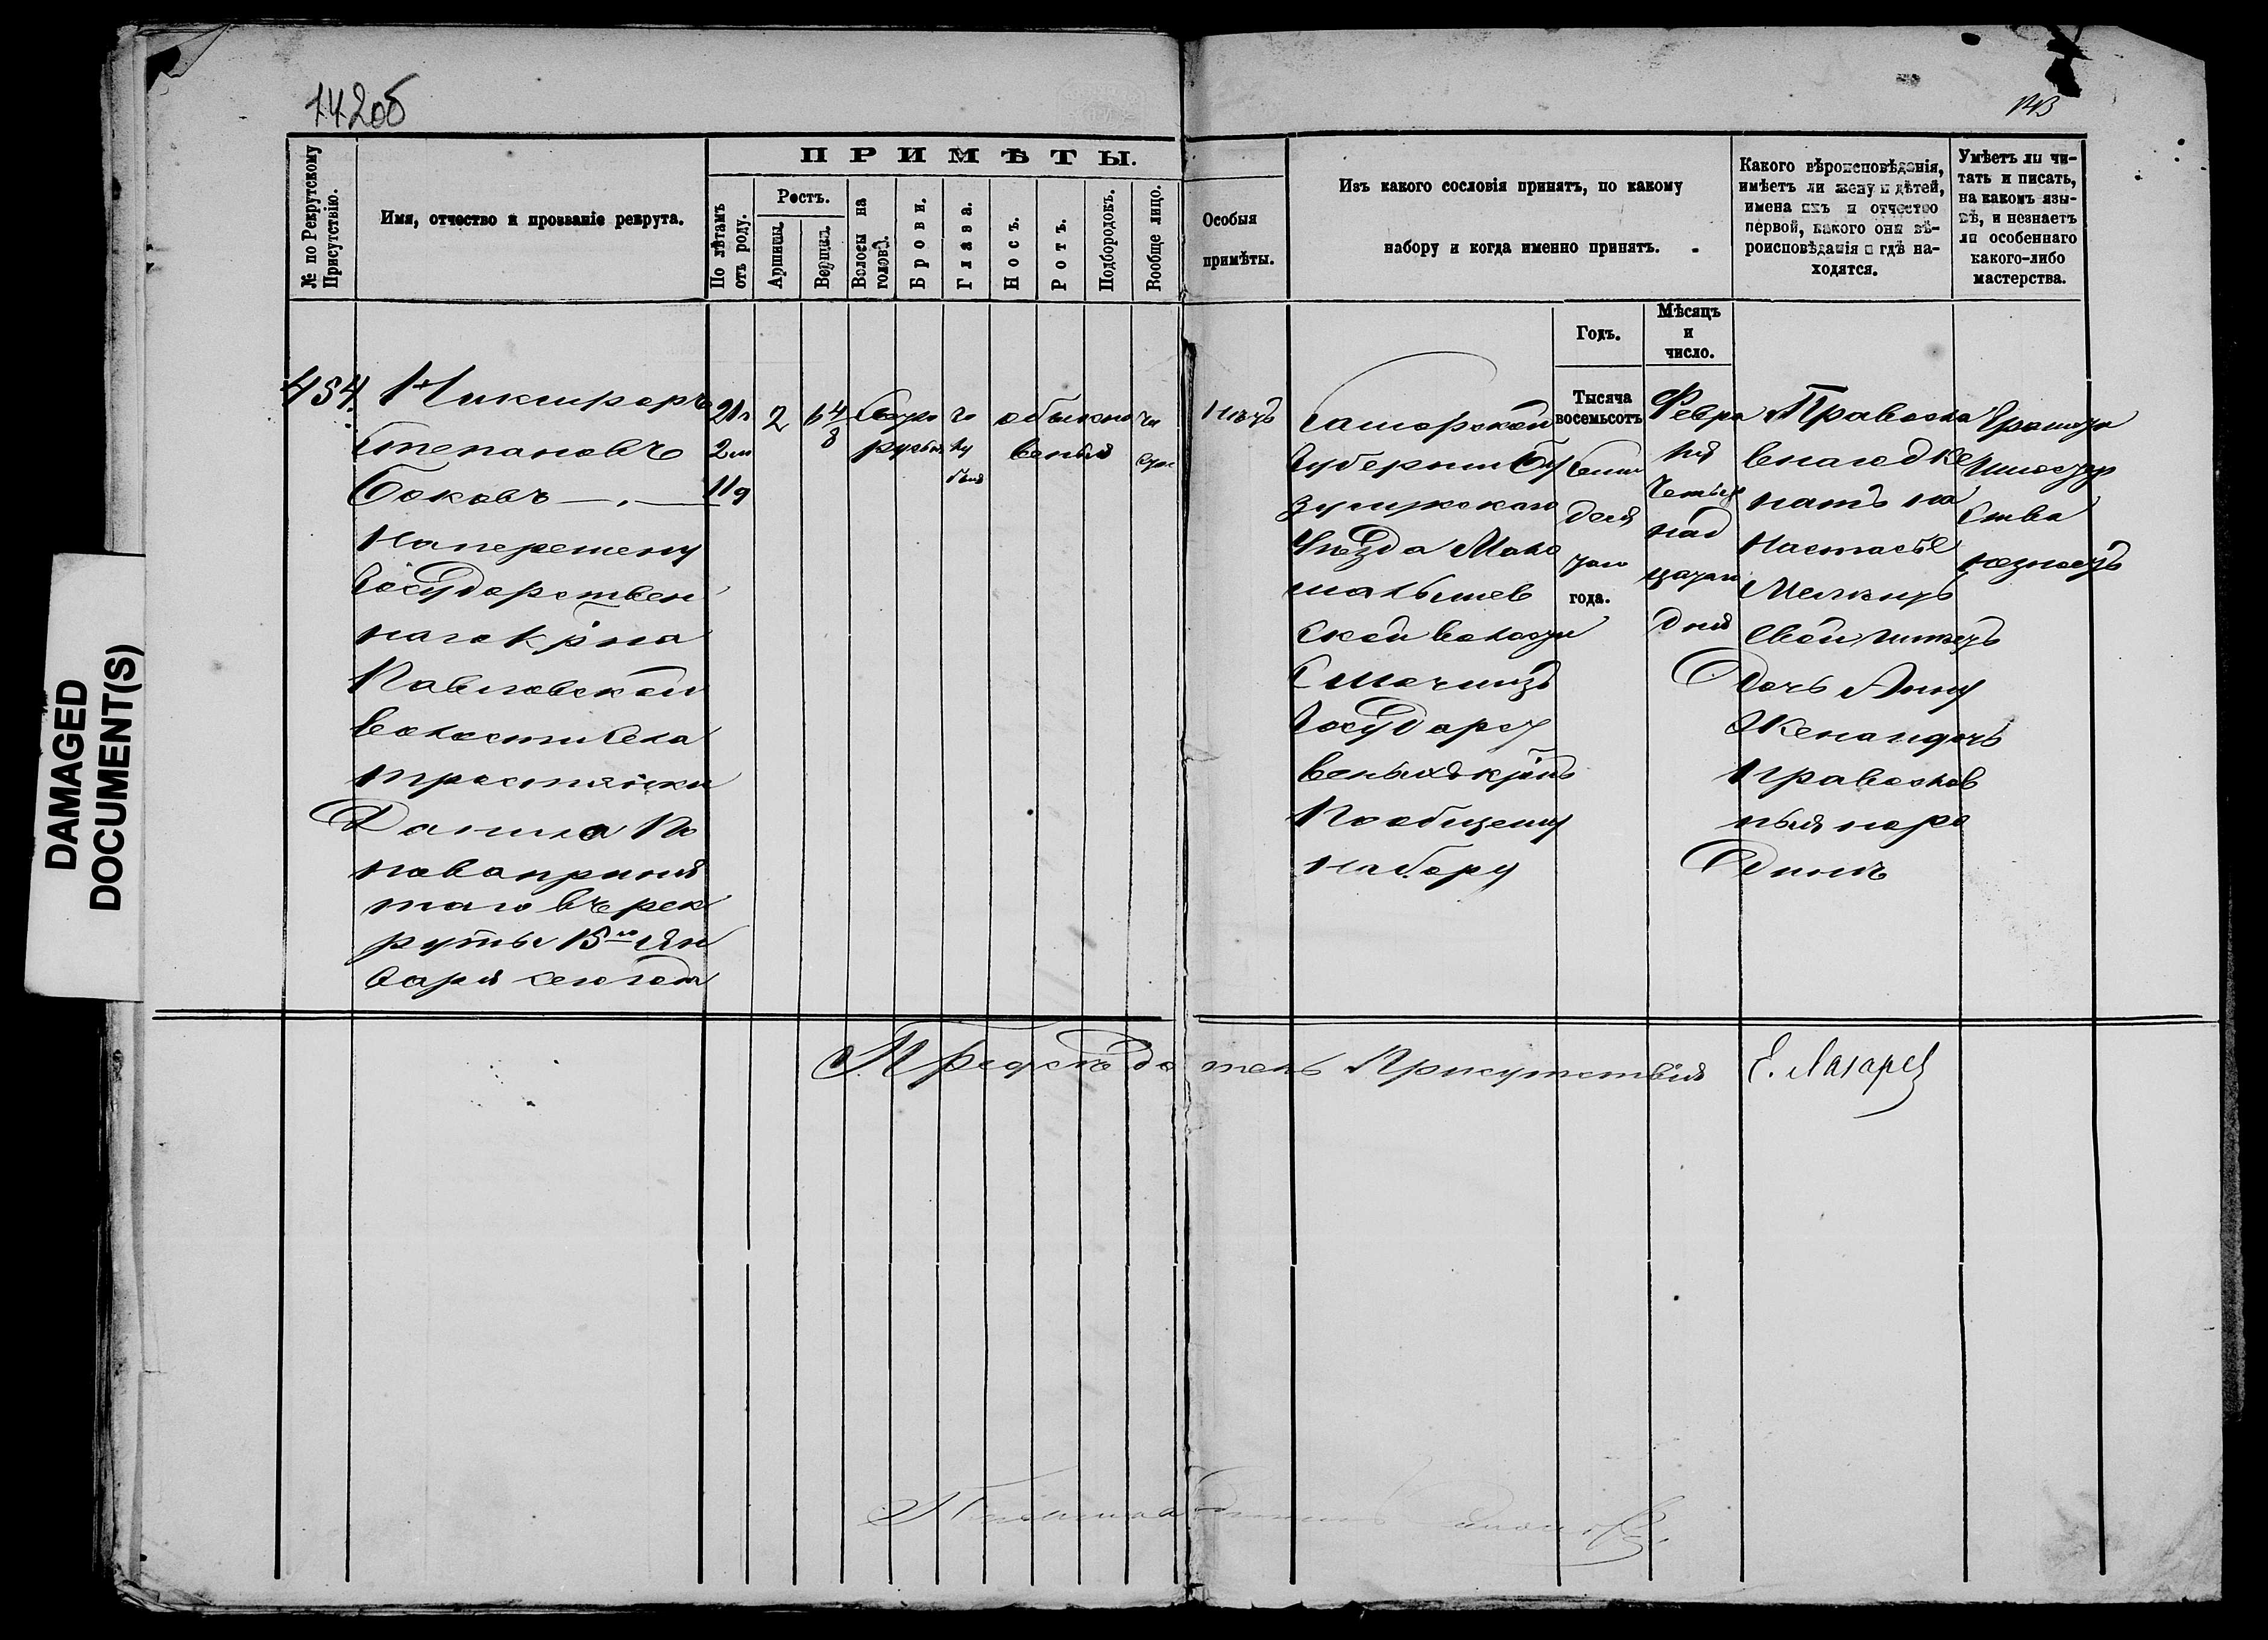 142об
№ по Рекрутскому Присутствію.
Имя, отчество и прозваніе рекрута.
ПРИМѢТЫ.
По лѣтамъ отъ роду.
Ростъ.
Аршины.
Вершки.
Волосы на головѣ.
Брови.
Глаза.
Носъ.
Ротъ.
Подбородокъ.
Вообще лицо.
Особыя
примѣты.
Изъ какого сословія принятъ, по какому
набору и когда именно принятъ.
Какого вѣроисповѣданія,
имѣетъ ли жену и дѣтей,
имена ихъ и отчество
первой, какого они вѣ-
роисповѣданія и гдѣ на-
ходятся.
Умѣетъ ли чи-
тать и писать,
на какомъ язы-
кѣ, и незнаетъ
ли особеннаго
какого-либо
мастерства.
Годъ.
Мѣсяцъ
и
число.
454.
Никифоръ
Степановъ
Боковъ
На перемену
Государствен
наго кр-на
Павловской
волости села
Тростянки
Данила По
пова приня
таго въ рек
руты 15го Ян
варя сего года
21л
2м
11д
2
6 4/8
русые
го
лу
бые
обыкно
венные
чи
стое
Нѣтъ
Самарской
Губернии Бу
зулукскаго
Уѣзда
ской волости
Государст
венныхъ кр-нъ
По общему
набору
Тысяча
восемьсотъ
семи
деся
таго
года.
Февра
ля
Четыр
над
цатаго
дня
Правосла
внаго д же
натъ на
Настасье
имеетъ
Дочь Анну
Жена и дочь
Православ
ныя на ро
дине
Грамоту
мастер
ства
незнаетъ
Председатель Присутствія Е. Лазарев